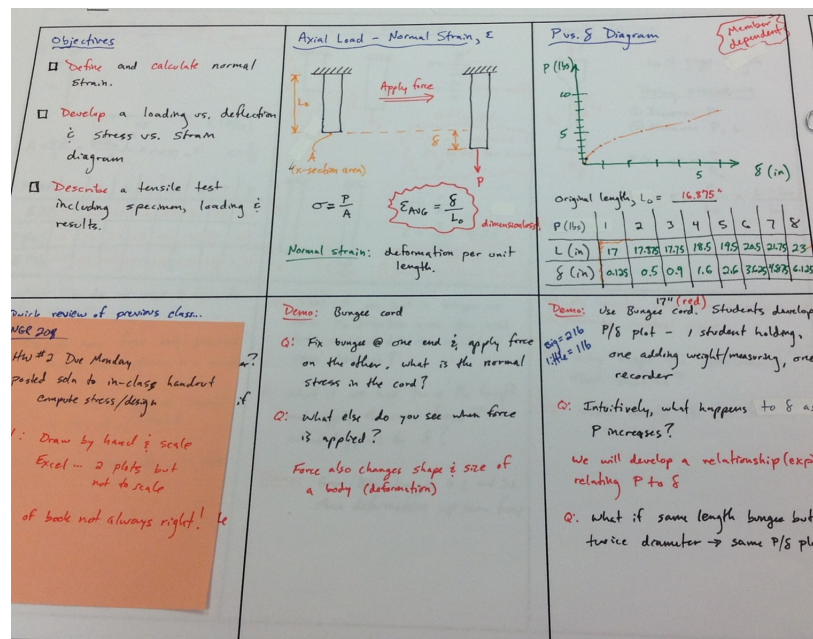 Objectives
Define and calculate normal
strain.
Develop a loading vs. deflection
& stress vs. strain
diagram
Describe a tensile test
including specimen, loading &
results.
Axial Load - Normal Strain, ε
Apply force
L₀
δ
A
(x-section area)
P
σ = P/A
ε_AVG = δ/L₀
dimensionless!
Normal strain: deformation per unit
length.
P vs. δ Diagram
Member
dependent
P (lbs)
10
5
5
δ (in)
original length, L₀ = 16.875"
P (lbs) 1 2 3 4 5 6 7 8
L (in) 17 17.375 17.75 18.5 19.5 20.5 21.75 23
δ (in) 0.125 0.5 0.9 1.6 2.6 3.625 4.875 6.125
Quick review of previous class...
HW #2 Due Monday
posted soln to in-class handout
compute stress/design
Draw by hand & scale
Excel... 2 plots but
not to scale
of book not always right!
Demo: Bungee cord
Q: Fix bungee @ one end & apply force
on the other, what is the normal
stress in the cord?
Q: What else do you see when force
is applied?
Force also changes shape & size of
a body (deformation)
17" (red)
Demo: Use Bungee cord. Students develop
Big = 2 lb
little = 1 lb
P/δ plot - 1 student holding,
one adding weight/measuring, one
recorder
Q: Intuitively, what happens to δ as
P increases?
We will develop a relationship (exp
relating P to δ
Q: What if same length bungee but
twice diameter → same P/δ pl